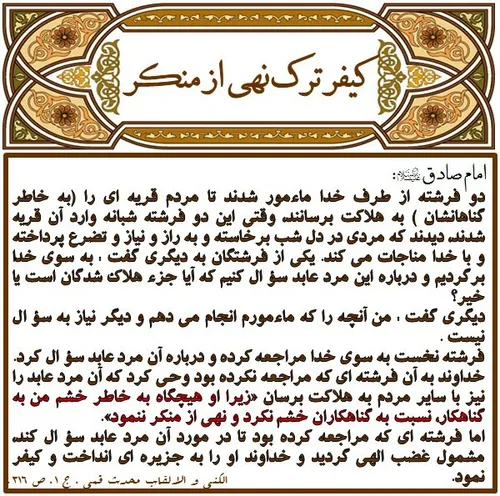 کیفر ترک نهی از منکر
امام صادق علیه‌السلام:
دو فرشته از طرف خدا ماءمور شدند تا مردم قریه ای را (به خاطر
گناهانشان ) به هلاکت برسانند، وقتی این دو فرشته شبانه وارد آن قریه
شدند، دیدند که مردی در دل شب برخاسته و به راز و نیاز و تضرع پرداخته
و با خدا مناجات می کند. یکی از فرشتگان به دیگری گفت : به سوی خدا
برگردیم و درباره این مرد عابد سؤ ال کنیم که آیا جزء هلاک شدگان است یا
خیر؟
دیگری گفت : من آنچه را که ماءمورم انجام می دهم و دیگر نیاز به سؤ ال
نیست .
فرشته نخست به سوی خدا مراجعه کرده و درباره آن مرد عابد سؤ ال کرد.
خداوند به آن فرشته ای که مراجعه نکرده بود وحی کرد که آن مرد عابد را
نیز با سایر مردم به هلاکت برسان «زیرا او هیچگاه به خاطر خشم من به
گناهکار، نسبت به گناهکاران خشم نکرد و نهی از منکر ننمود».
اما فرشته ای که مراجعه کرده بود تا در مورد آن مرد عابد سؤ ال کند،
مشمول غضب الهی گردید و خداوند او را به جزیره ای انداخت و کیفر
نمود.
الکنی و الالقاب محدث قمی . ج ۱. ص ۳۱۶.